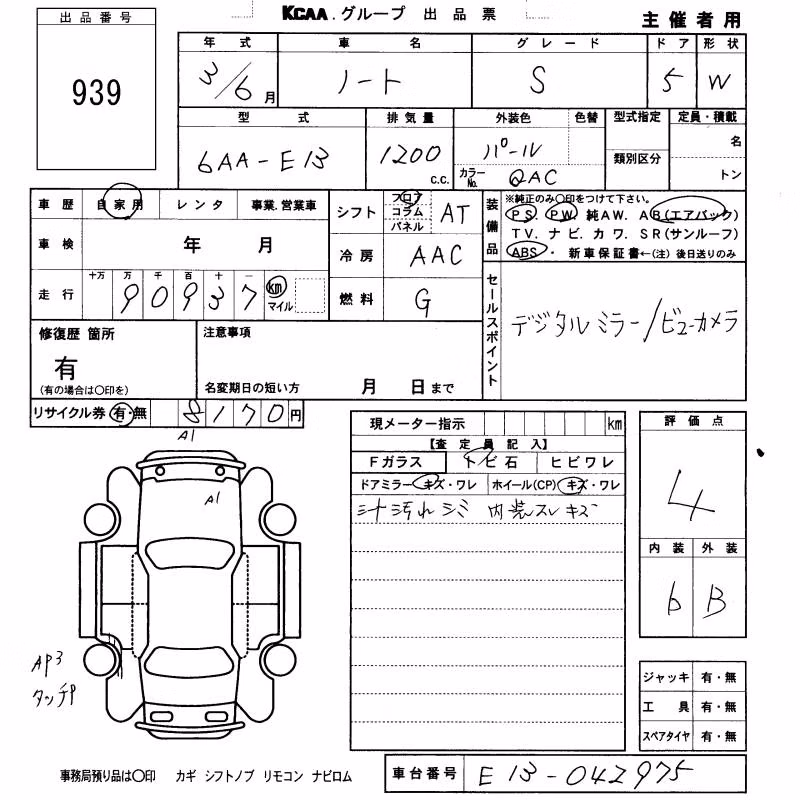 KCAA.グループ 出品票
主催者用
出品番号
939
年式 車名 グレード ドア 形状
3/6月 ノート S 5 W
型式 排気量 外装色 色替 型式指定 定員・積載
6AA-E13 1200 c.c. パール 名
カラーNo. QAC 類別区分 トン
車歴 自家用 レンタ 事業.営業車
車検 年 月
十万 万 千 百 十 一
走行 90937 km マイル
シフト フロア コラム パネル AT
冷房 AAC
燃料 G
装備品
※純正のみ〇印をつけて下さい。
PS. PW. 純AW. AB(エアバック)
TV. ナビ. カワ. SR(サンルーフ)
ABS. 新車保証書←(注)後日送りのみ
セールスポイント
デジタルミラー/ビューカメラ
修復歴 箇所
有
(有の場合は〇印を)
注意事項
名変期日の短い方 月 日まで
リサイクル券 有・無 8170円
A1
A1
AP3
タッチP
現メーター指示 km
【査定員記入】
Fガラス トビ石 ヒビワレ
ドアミラーキズ・ワレ ホイール(CP) キズ・ワレ
シート汚れシミ 内装スレキズ
評価点
4
内装 外装
b B
ジャッキ 有・無
工具 有・無
スペアタイヤ 有・無
事務局預り品は〇印 カギ シフトノブ リモコン ナビロム
車台番号 E13-042975